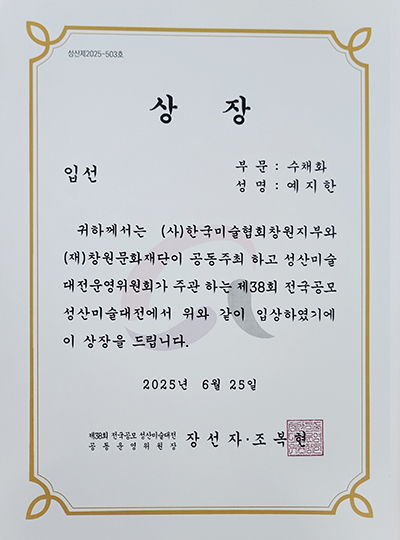 성산제2025-503호
상 장
입선
부 문 : 수채화
성 명 : 예지한
귀하께서는 (사)한국미술협회창원지부와
(재)창원문화재단이 공동주최 하고 성산미술
대전운영위원회가 주관 하는 제38회 전국공모
성산미술대전에서 위와 같이 입상하였기에
이 상장을 드립니다.
2025년 6월 25일
제38회 전국공모 성산미술대전
공동운영위원장
장선자·조복현